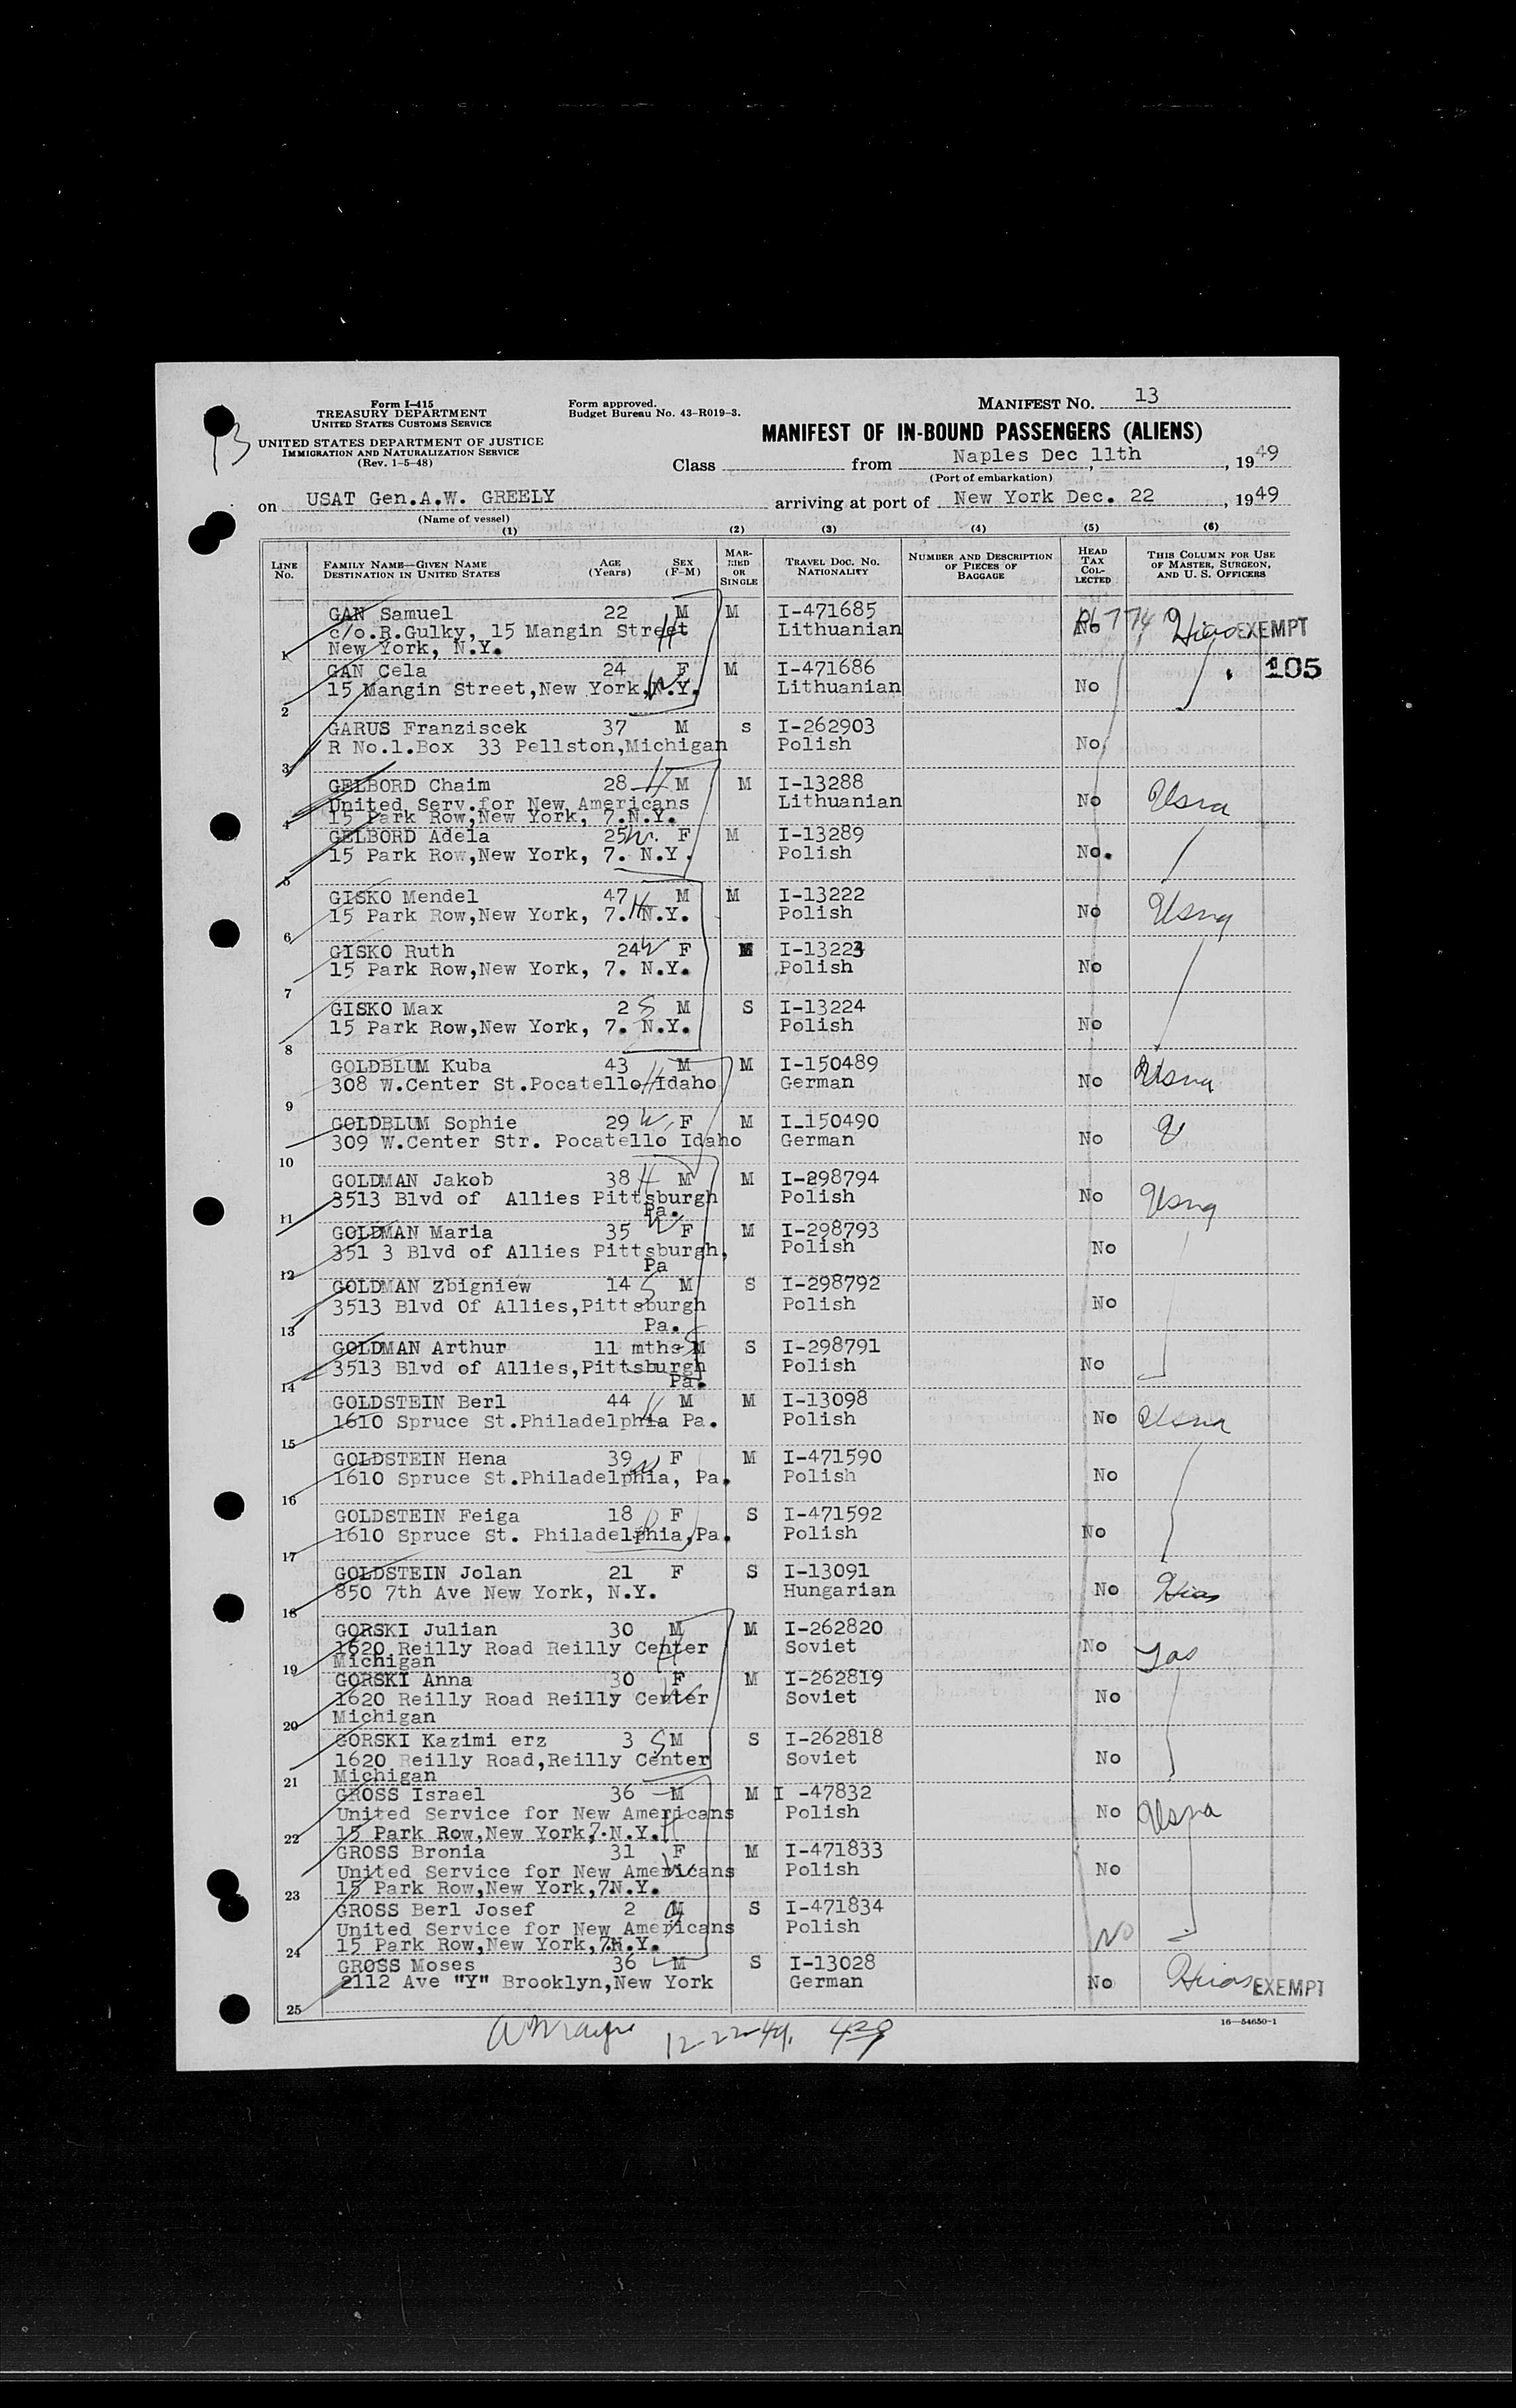 Form I-415
TREASURY DEPARTMENT
UNITED STATES CUSTOMS SERVICE
UNITED STATES DEPARTMENT OF JUSTICE
IMMIGRATION AND NATURALIZATION SERVICE
(Rev. 1-5-48)
Form approved.
Budget Bureau No. 43-R019-3.
MANIFEST NO. 13
13
MANIFEST OF IN-BOUND PASSENGERS (ALIENS)
Class from Naples Dec 11th, 1949
(Port of embarkation)
on USAT Gen.A.W. GREELY arriving at port of New York Dec. 22, 1949
(Name of vessel)
(1) (2) (3) (4) (5) (6)
LINE No. FAMILY NAME—GIVEN NAME DESTINATION IN UNITED STATES AGE (Years) SEX (F-M) MARRIED OR SINGLE TRAVEL DOC. NO. NATIONALITY NUMBER AND DESCRIPTION OF PIECES OF BAGGAGE HEAD TAX COLLECTED THIS COLUMN FOR USE OF MASTER, SURGEON, AND U. S. OFFICERS
GAN Samuel 22 M M I-471685
c/o.R.Gulky, 15 Mangin Street H Lithuanian No Hias EXEMPT
1 New York, N.Y.
GAN Cela 24 F M I-471686 105
15 Mangin Street,New York,N.Y. W Lithuanian No
2
GARUS Franziscek 37 M s I-262903
R No.1.Box 33 Pellston,Michigan Polish No
3
GELBORD Chaim 28 H M M I-13288
United Serv.for New Americans Lithuanian No Usna
4 15 Park Row,New York, 7.N.Y.
GELBORD Adela 25 W. F M I-13289
15 Park Row,New York, 7. N.Y. Polish No.
5
GISKO Mendel 47 H M M I-13222
15 Park Row,New York, 7. N.Y. Polish No Usna
6
GISKO Ruth 24 W F M I-13223
15 Park Row,New York, 7. N.Y. Polish No
7
GISKO Max 2 S M S I-13224
15 Park Row,New York, 7. N.Y. Polish No
8
GOLDBLUM Kuba 43 M M I-150489
308 W.Center St.Pocatello Idaho H German No Usna
9
GOLDBLUM Sophie 29 W F M I_150490
309 W.Center Str. Pocatello Idaho German No
10
GOLDMAN Jakob 38 H M M I-298794
3513 Blvd of Allies Pittsburgh Polish No Usna
11 Pa.
GOLDMAN Maria 35 W F M I-298793
351 3 Blvd of Allies Pittsburgh, Polish No
12 Pa
GOLDMAN Zbigniew 14 S M S I-298792
3513 Blvd Of Allies,Pittsburgh Polish No
13 Pa.
GOLDMAN Arthur 11 mths S M S I-298791
3513 Blvd of Allies,Pittsburgh Polish No
14 Pa.
GOLDSTEIN Berl 44 H M M I-13098
1610 Spruce St.Philadelphia Pa. Polish No Usna
15
GOLDSTEIN Hena 39 W F M I-471590
1610 Spruce St.Philadelphia, Pa. Polish No
16
GOLDSTEIN Feiga 18 D F S I-471592
1610 Spruce St. Philadelphia,Pa. Polish No
17
GOLDSTEIN Jolan 21 F S I-13091
850 7th Ave New York, N.Y. Hungarian No Hias
18
GORSKI Julian 30 M M I-262820
1620 Reilly Road Reilly Center H Soviet No
19 Michigan
GORSKI Anna 30 F M I-262819
1620 Reilly Road Reilly Center W Soviet No
20 Michigan
GORSKI Kazimi erz 3 S M S I-262818
1620 Reilly Road,Reilly Center Soviet No
21 Michigan
GROSS Israel 36 M M I -47832
United Service for New Americans Polish No Usna
22 15 Park Row,New York,7.N.Y. H
GROSS Bronia 31 F M I-471833
United Service for New Americans W Polish No
23 15 Park Row,New York,7N.Y.
GROSS Berl Josef 2 S M S I-471834
United Service for New Americans Polish No
24 15 Park Row,New York,7N.Y.
GROSS Moses 36 M S I-13028
2112 Ave "Y" Brooklyn,New York German No Hias EXEMPT
25
16—54650-1
12-22-49. 429